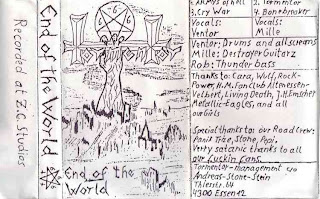 End of the World
Recorded at Z.C. Studios
Tormentor
666
End of the
World
3. Cry War
2. Tormentor
4. Bonebreaker
Vocals:
Ventor
Vocals:
Mille
Ventor: Drums and all screams
Mille: Destroyer Guitarz
Rob: Thunder bass
Thanks to: Cara, Wulf, Rock-
Power, H.M. Fanclub Altmessen-
Velbert, Living Death, J.H Emscher
Metallic Eagles, and all
our Girls
Special thanks to: our Road Crew:
Panit Träe, Stone, Popi,
Verry satanic thanks to all
our fuckin fans.
Tormentor-management c/o
Andreas-Stone-Stein
Thiesstr. 64
4300 Essen 12